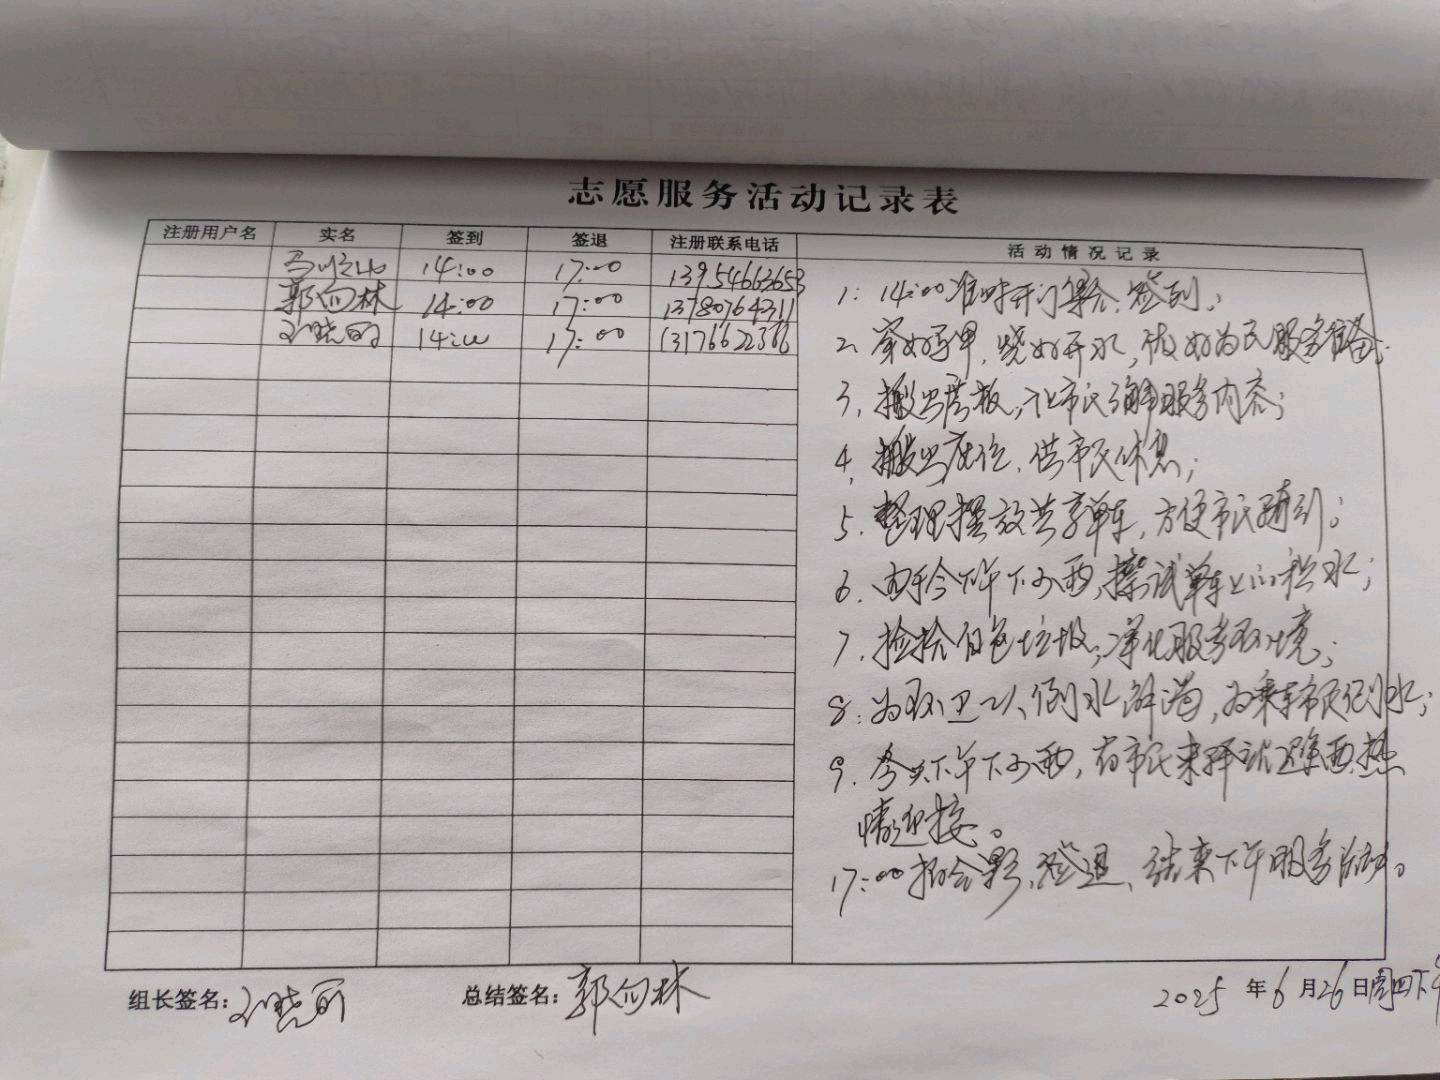 志愿服务活动记录表
注册用户名 实名 签到 签退 注册联系电话 活动情况记录
14:00 17:00 13954663653
郭向林 14:00 17:00 13780764311
14:00 17:00 13176622366
1: 14:00准时开门集合、签到;
2、穿好马甲,烧好开水,做好为民服务准备;
3、搬出展板,让市民了解服务内容;
4、搬出座位,供市民休息;
5、整理摆放共享单车,方便市民骑行;
6、由于今下午下小雨,擦试单车上的积水;
7、捡拾白色垃圾,净化服务环境;
8:为环卫工人倒水解渴,为乘车市民倒水;
9、今天下午下小雨,有市民来驿站避雨,热
情迎接。
17:00拍合影、签退、结束下午服务活动。
组长签名: 总结签名:郭向林 2025年6月26日周四下午